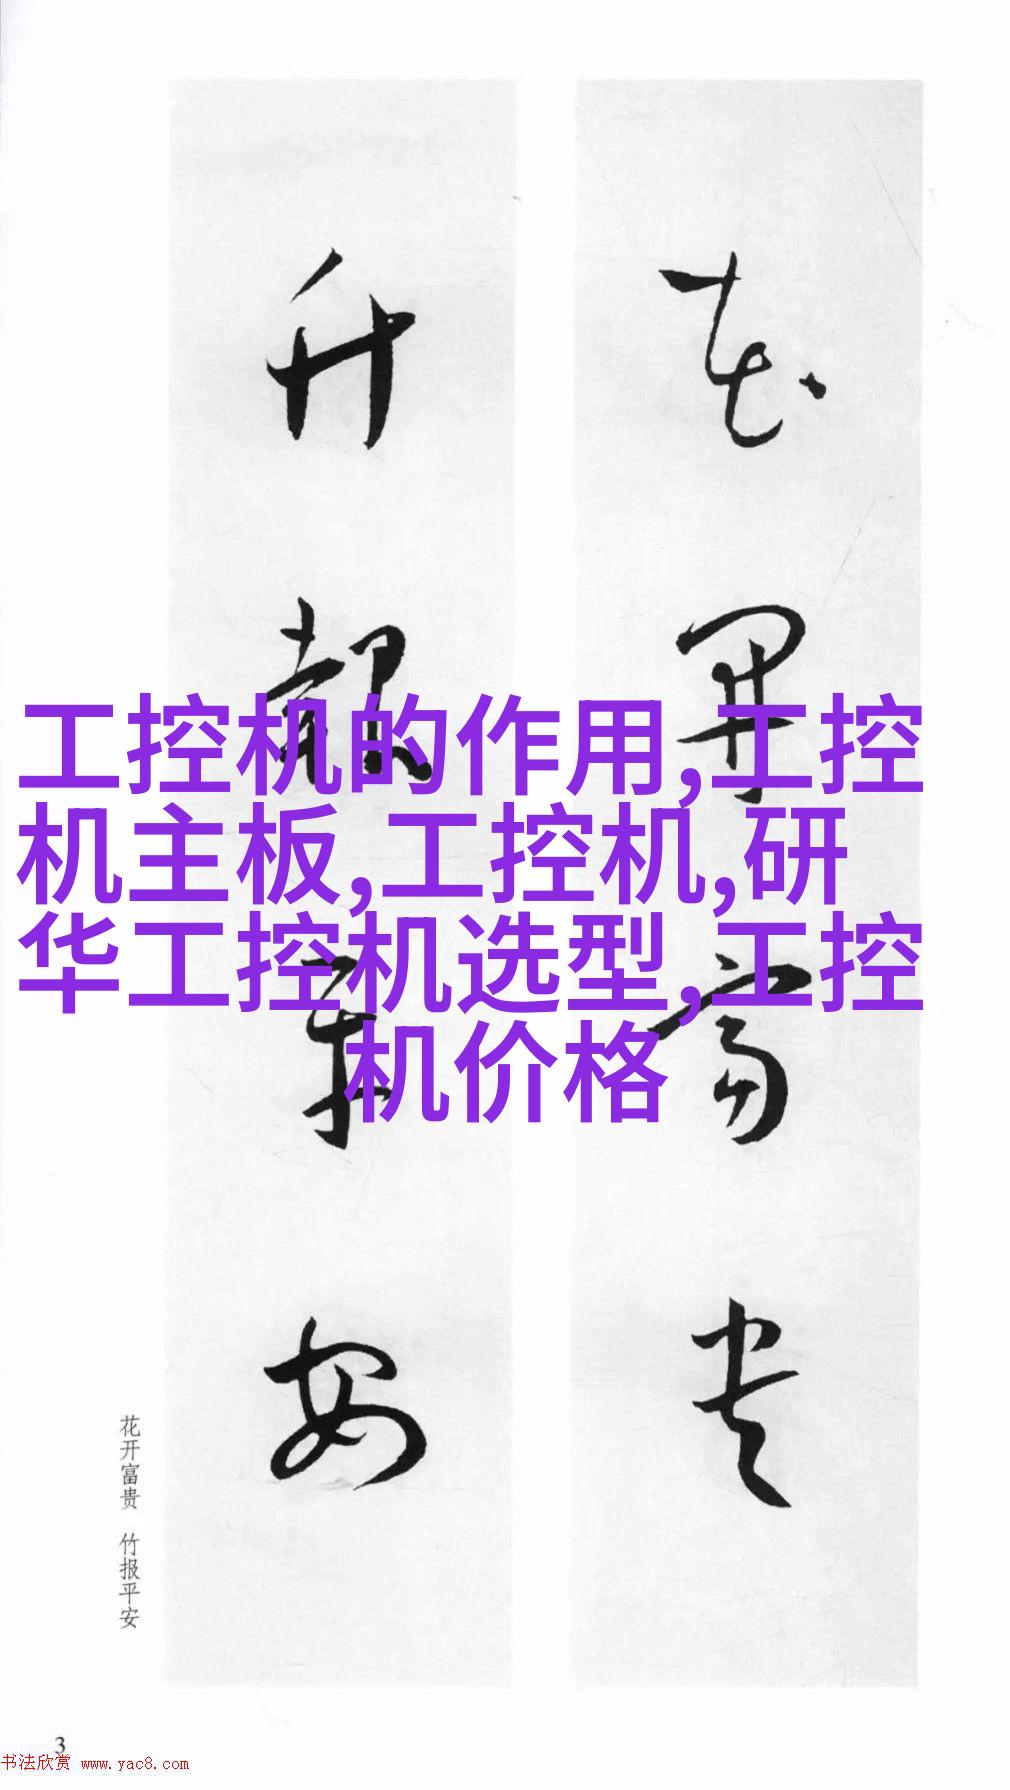 花開富贵
竹報平安
工控机的作用,工控
机主板,工控机,研
华工控机选型,工控
机价格
花开富贵 竹报平安
3
书法欣赏 www.yac8.com